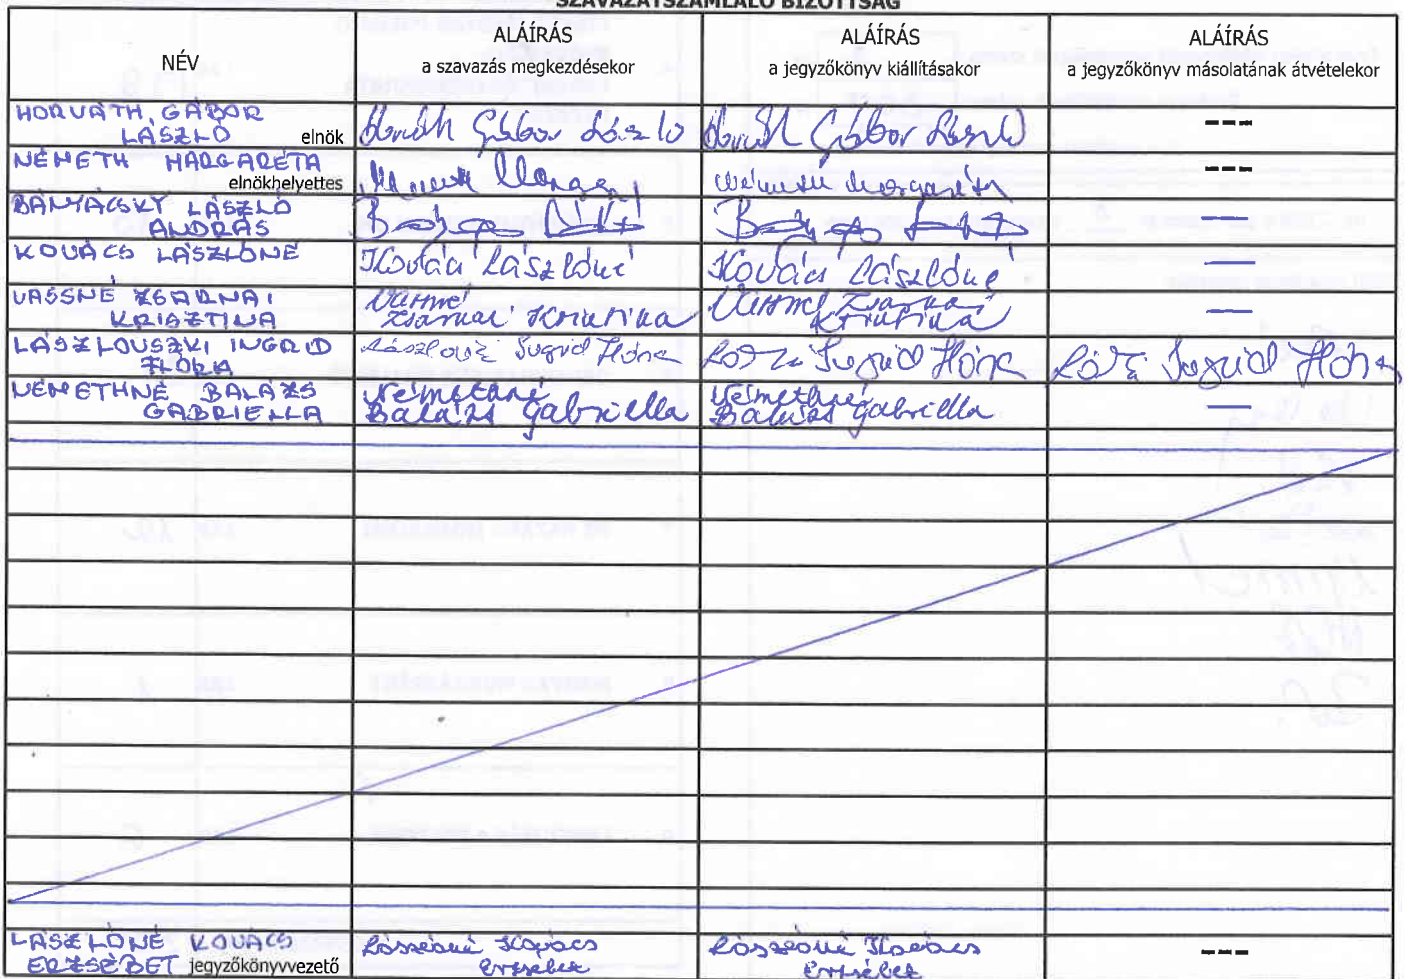 SZAVAZATSZÁMLÁLÓ BIZOTTSÁG
NÉV
ALÁÍRÁS
a szavazás megkezdésekor
ALÁÍRÁS
a jegyzőkönyv kiállításakor
ALÁÍRÁS
a jegyzőkönyv másolatának átvételekor
HORVÁTH, GÁBOR
LÁSZLÓ elnök
Horváth Gábor László
Horváth Gábor László
---
NÉMETH MARGARÉTA
elnökhelyettes
Németh Margaréta
---
BÁNYÁCSKY LÁSZLÓ
ANDRÁS
—
KOVÁCS LÁSZLÓNÉ
Kovács Lászlóné
Kovács Lászlóné
—
VASSNÉ ZSARNAI
KRISZTINA
Vassné
Zsarnai Krisztina
Vassné Zsarnai
Krisztina
—
LÁSZLOVSZKI INGRID
FLÓRA
Ingrid Flóra
Ingrid Flóra
Ingrid Flóra
NÉMETHNÉ BALÁZS
GABRIELLA
Némethné
Balázs Gabriella
Némethné
Balázs Gabriella
—
LÁSZLÓNÉ KOVÁCS
ERZSÉBET jegyzőkönyvvezető
Lászlóné Kovács
Erzsébet
Lászlóné Kovács
Erzsébet
---